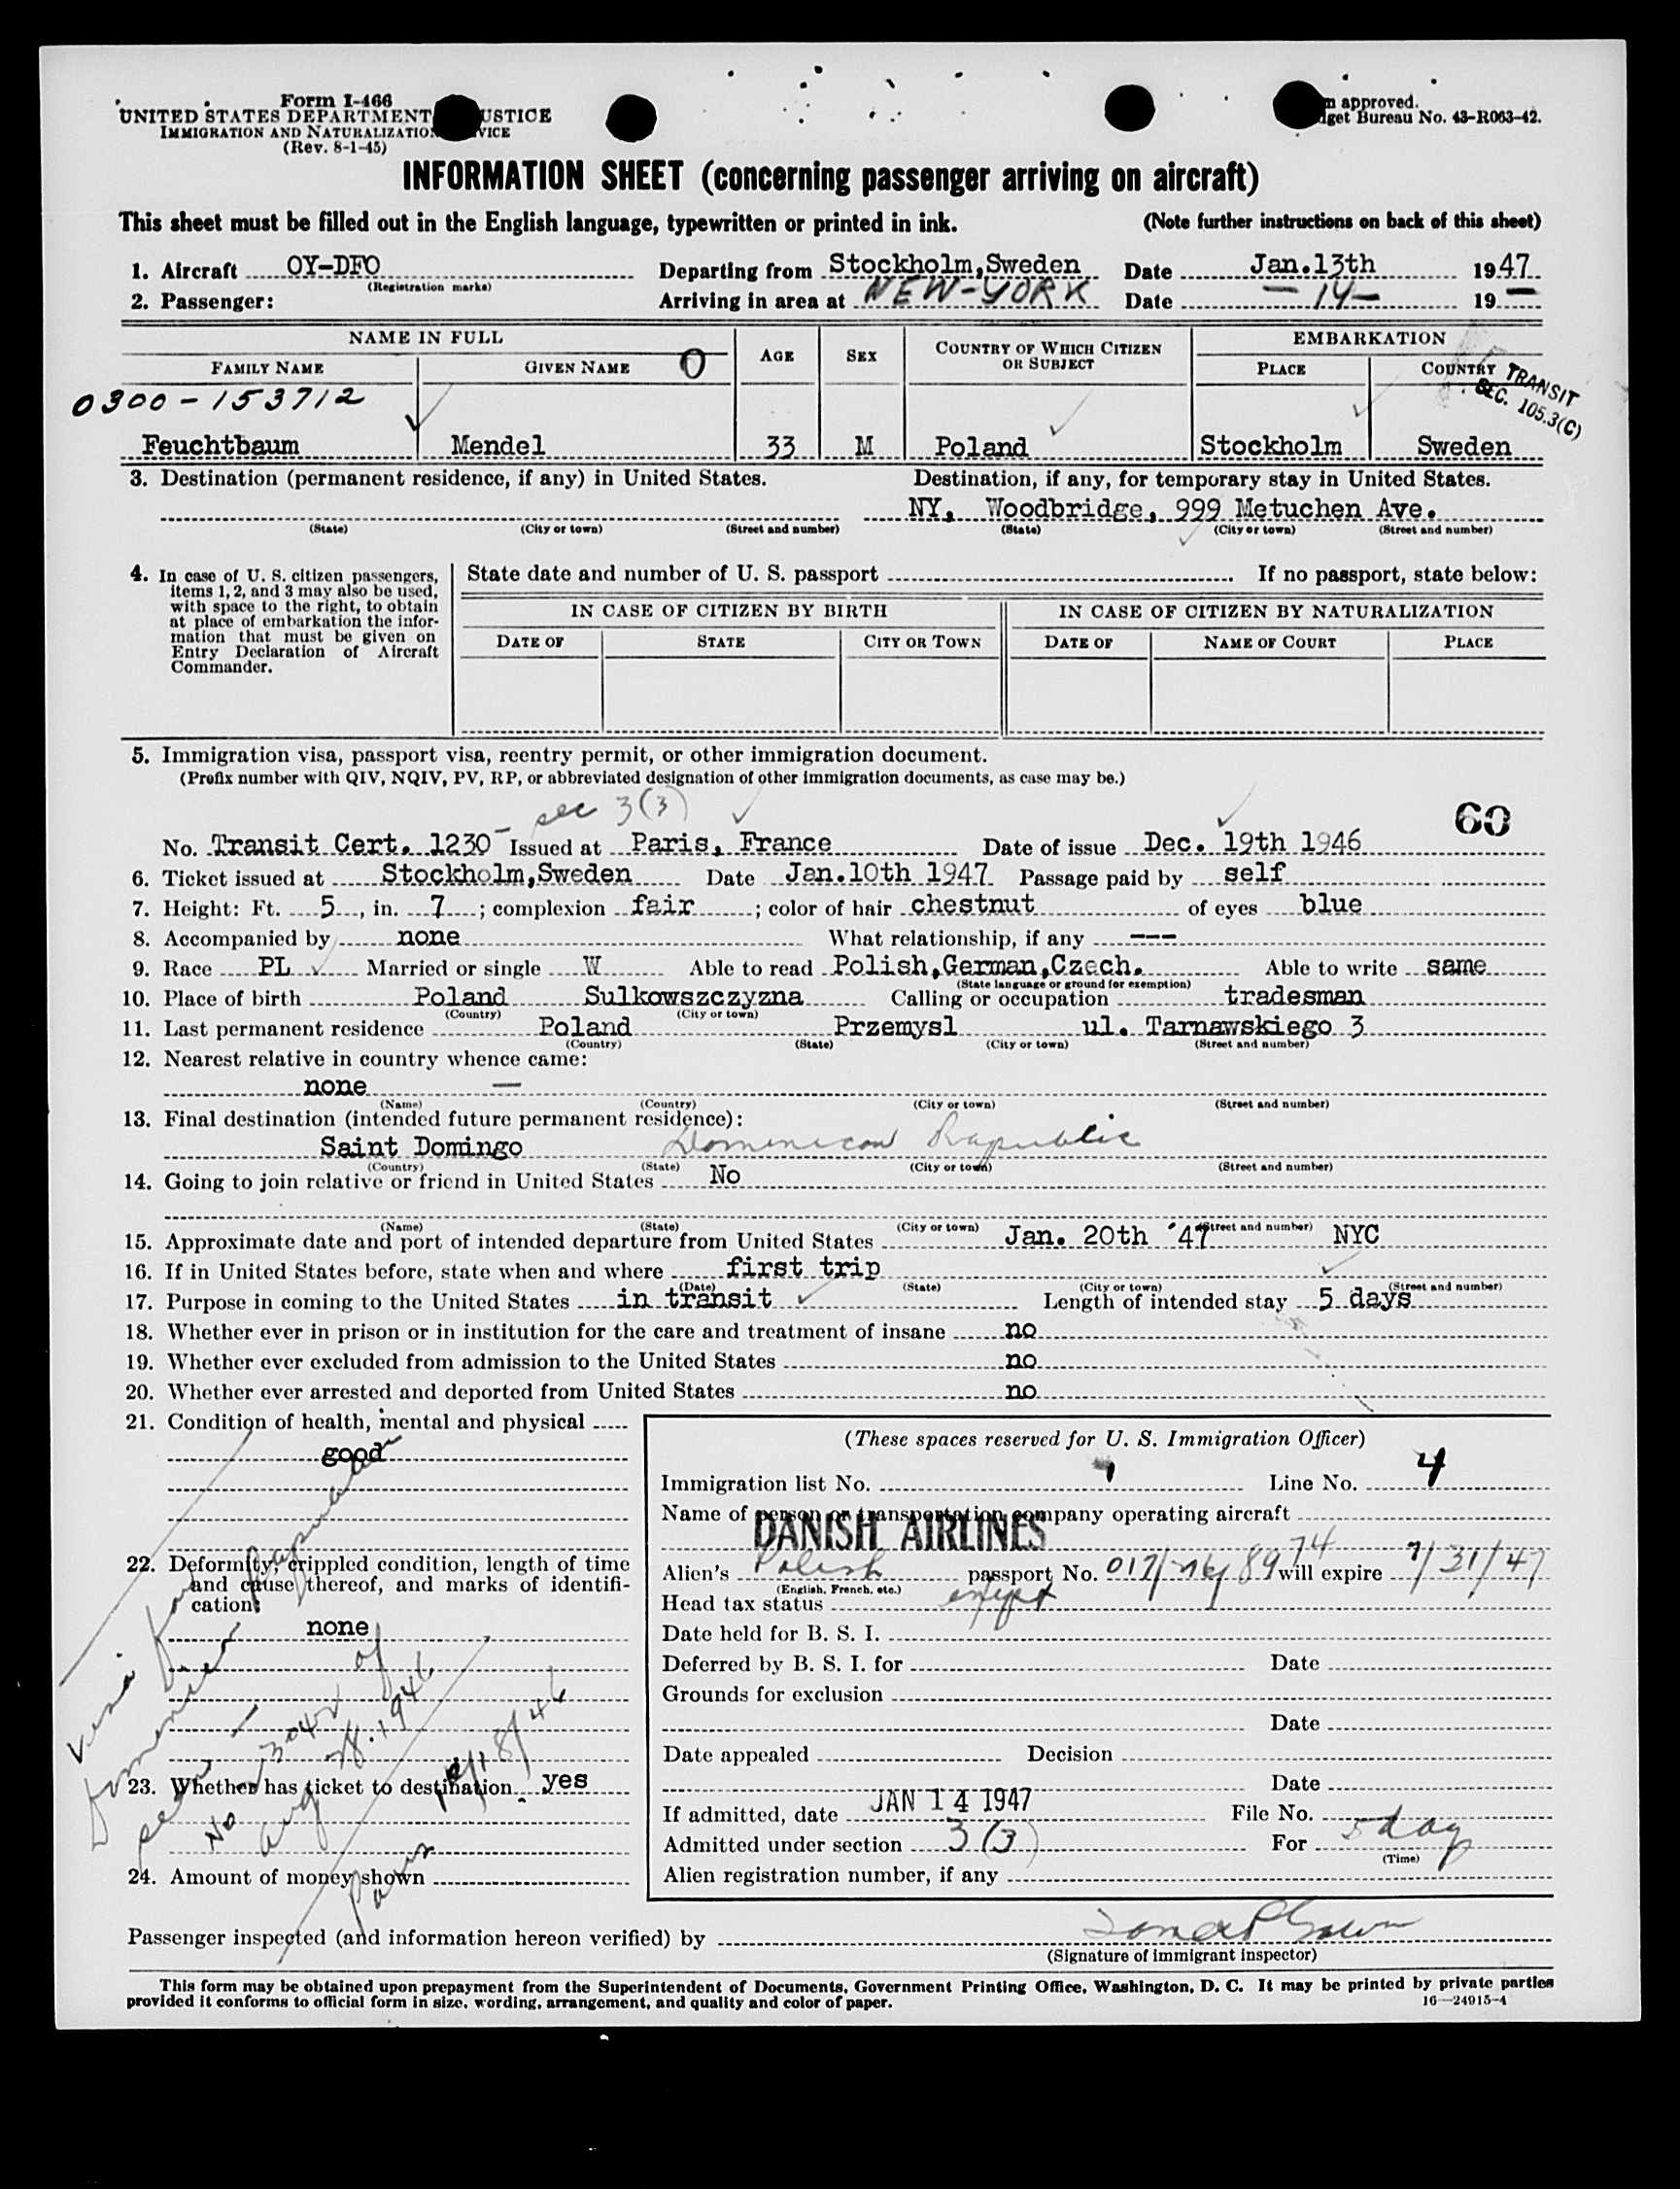 Form I-466
UNITED STATES DEPARTMENT USTICE
IMMIGRATION AND NATURALIZATION VICE
(Rev. 8-1-45)
m approved.
get Bureau No. 43-R063-42.
INFORMATION SHEET (concerning passenger arriving on aircraft)
This sheet must be filled out in the English language, typewritten or printed in ink. (Note further instructions on back of this sheet)
1. Aircraft OY-DFO Departing from Stockholm,Sweden Date Jan.13th 1947
(Registration marks)
2. Passenger: Arriving in area at NEW-YORK Date — 14 — 19 —
NAME IN FULL EMBARKATION
FAMILY NAME GIVEN NAME O AGE SEX COUNTRY OF WHICH CITIZEN OR SUBJECT PLACE COUNTRY
TRANSIT
SEC. 105.3(C)
0300-153712
Feuchtbaum Mendel 33 M Poland Stockholm Sweden
3. Destination (permanent residence, if any) in United States. Destination, if any, for temporary stay in United States.
NY, Woodbridge, 999 Metuchen Ave.
(State) (City or town) (Street and number) (State) (City or town) (Street and number)
4. In case of U. S. citizen passengers, items 1, 2, and 3 may also be used, with space to the right, to obtain at place of embarkation the information that must be given on Entry Declaration of Aircraft Commander.
State date and number of U. S. passport If no passport, state below:
IN CASE OF CITIZEN BY BIRTH IN CASE OF CITIZEN BY NATURALIZATION
DATE OF STATE CITY OR TOWN DATE OF NAME OF COURT PLACE
5. Immigration visa, passport visa, reentry permit, or other immigration document.
(Prefix number with QIV, NQIV, PV, RP, or abbreviated designation of other immigration documents, as case may be.)
sec 3(3) 60
No. Transit Cert. 1230 Issued at Paris, France Date of issue Dec. 19th 1946
6. Ticket issued at Stockholm,Sweden Date Jan.10th 1947 Passage paid by self
7. Height: Ft. 5, in. 7; complexion fair; color of hair chestnut of eyes blue
8. Accompanied by none What relationship, if any ---
9. Race PL Married or single W Able to read Polish,German,Czech. Able to write same
(State language or ground for exemption)
10. Place of birth Poland Sulkowszczyzna Calling or occupation tradesman
(Country) (City or town)
11. Last permanent residence Poland Przemysl ul. Tarnawskiego 3
(Country) (State) (City or town) (Street and number)
12. Nearest relative in country whence came:
none —
(Name) (Country) (City or town) (Street and number)
13. Final destination (intended future permanent residence):
Saint Domingo Dominican Republic
(Country) (State) (City or town) (Street and number)
14. Going to join relative or friend in United States No
(Name) (State) (City or town) (Street and number)
15. Approximate date and port of intended departure from United States Jan. 20th '47 NYC
16. If in United States before, state when and where first trip
(Date) (State) (City or town) (Street and number)
17. Purpose in coming to the United States in transit Length of intended stay 5 days
18. Whether ever in prison or in institution for the care and treatment of insane no
19. Whether ever excluded from admission to the United States no
20. Whether ever arrested and deported from United States no
21. Condition of health, mental and physical
good
22. Deformity, crippled condition, length of time and cause thereof, and marks of identification:
none
23. Whether has ticket to destination yes
24. Amount of money shown
Visa
No 3042 of
Aug 28.1946
Paris
(These spaces reserved for U. S. Immigration Officer)
Immigration list No. 1 Line No. 4
Name of person or transportation company operating aircraft
DANISH AIRLINES
Alien's Polish passport No. will expire 7/31/47
(English, French, etc.)
Head tax status exempt
Date held for B. S. I.
Deferred by B. S. I. for Date
Grounds for exclusion
Date
Date appealed Decision
Date
If admitted, date JAN 14 1947 File No.
Admitted under section 3(3) For 5 day
(Time)
Alien registration number, if any
Passenger inspected (and information hereon verified) by
(Signature of immigrant inspector)
This form may be obtained upon prepayment from the Superintendent of Documents, Government Printing Office, Washington, D. C. It may be printed by private parties
provided it conforms to official form in size, wording, arrangement, and quality and color of paper. 16—24915-4